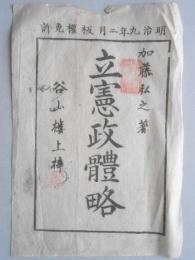 明治九年二月 板權免許
加藤弘之著
立憲政體略
谷山樓上梓